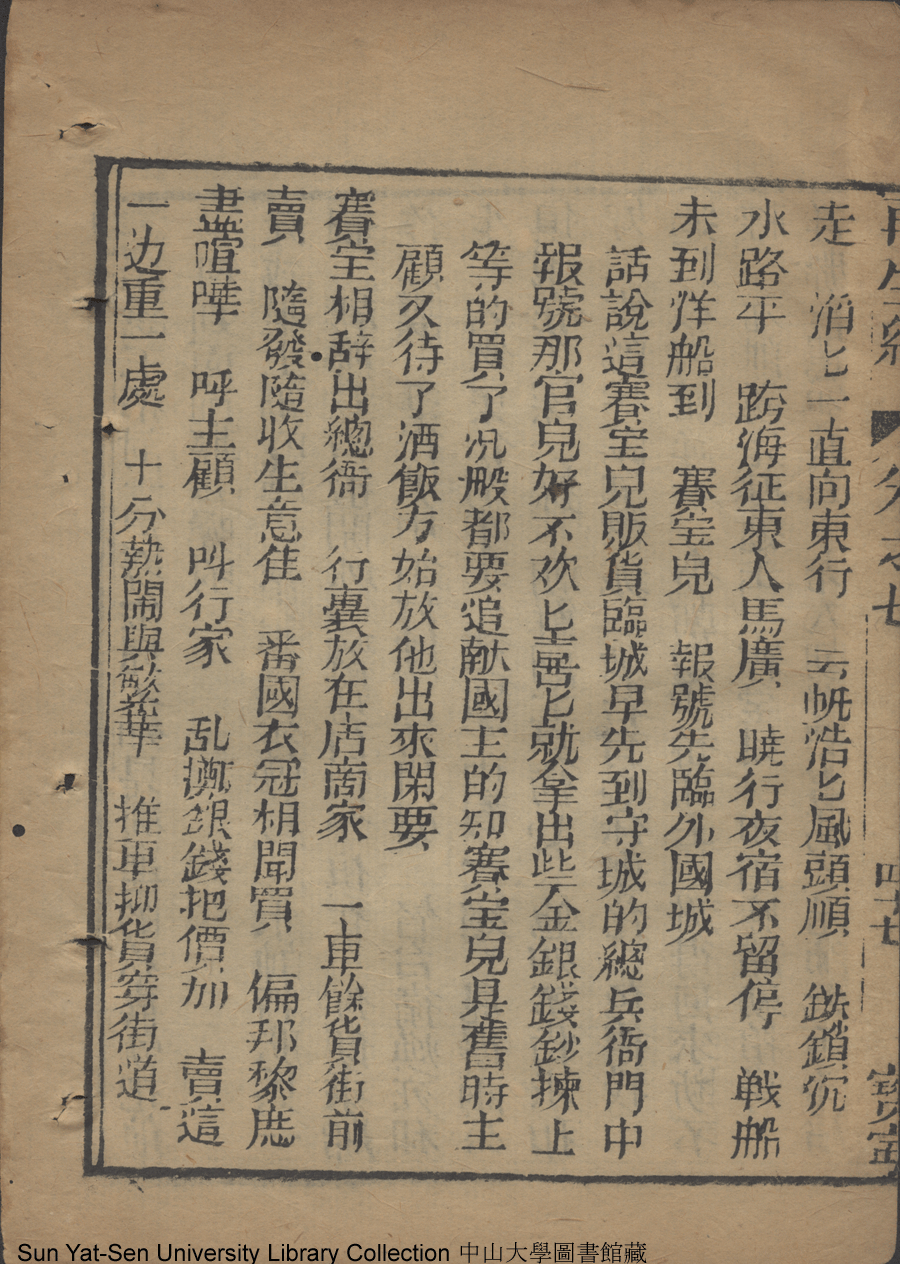 再生緣 卷之七 四十七 寶寧
走 滔匕一直向東行 云帆浩匕風頭順 鉄鎖沉
水路平 跨海征東人馬廣 曉行夜宿不留停 戦船
未到洋船到 賽宝兒 報號先臨外國城
話說這賽宝兒販貨臨城早先到守城的總兵衙門中
報號那官兒好不欢匕喜匕就拿出些金銀錢鈔揀上
等的買了况般都要追献國主的知賽宝兒是舊時主
顧又待了酒飯方始放他出來閑耍
賽宝相辞出總衙 行囊放在店商家 一車餘貨街前
賣 隨發隨收生意佳 番國衣冠相聞買 偏邦黎庶
盡喧嘩 呼主顧 叫行家 乱擲銀錢把價加 賣這
一边重一處 十分熱鬧與繁華 推車抑貨穿街道
Sun Yat-Sen University Library Collection 中山大學圖書館藏